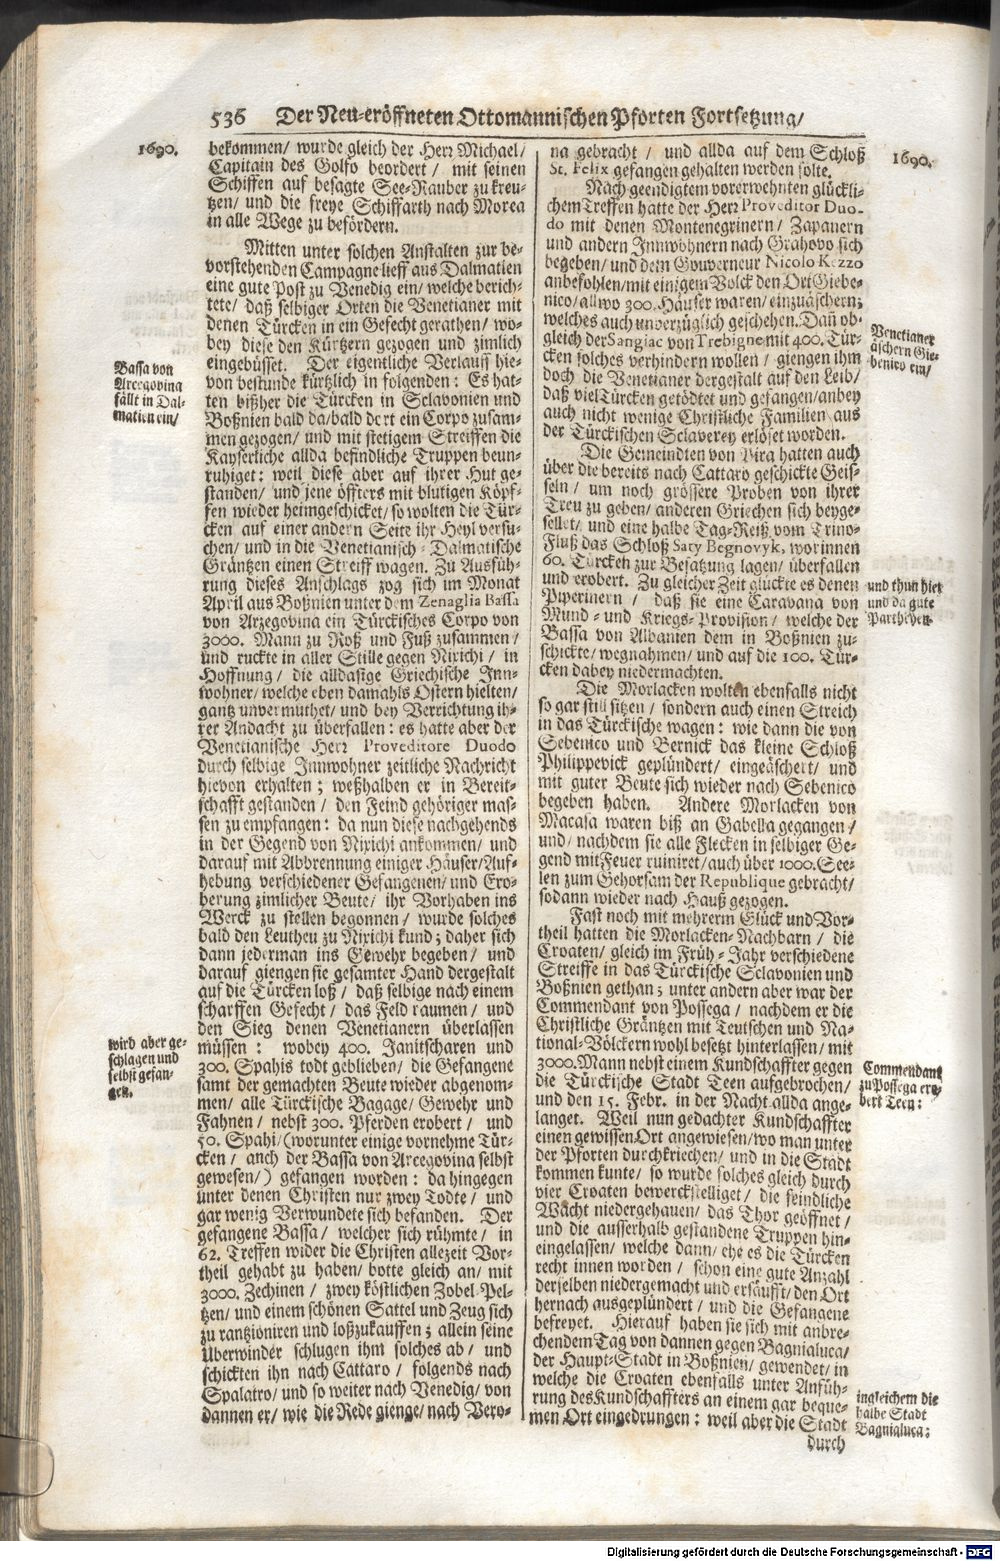 536 Der Neu-eröffneten Ottomannischen Pforten Fortsetzung/
1690.
bekommen/ wurde gleich der Herr Michael/
Capitain des Golfo beordert/ mit seinen
Schiffen auf besagte See-Rauber zu kreu-
tzen/ und die freye Schiffarth nach Morea
in alle Wege zu befördern.
Mitten unter solchen Anstalten zur be-
vorstehenden Campagne lieff aus Dalmatien
eine gute Post zu Venedig ein/ welche berich-
tete/ daß selbiger Orten die Venetianer mit
denen Türcken in ein Gefecht gerathen/ wo-
bey diese den Kürtzern gezogen und zimlich
eingebüsset. Der eigentliche Verlauff hie-
von bestunde kürtzlich in folgenden: Es hat-
ten bißher die Türcken in Sclavonien und
Boßnien bald da/ bald dort ein Corpo zusam-
men gezogen/ und mit stetigem Streiffen die
Kayserliche allda befindliche Truppen beun-
ruhiget: weil diese aber auf ihrer Hut ge-
standen/ und jene öffters mit blutigen Köpf-
fen wieder heimgeschicket/ so wolten die Tür-
cken auf einer andern Seite ihr Heyl versu-
chen/ und in die Venetianisch-Dalmatische
Gräntzen einen Streiff wagen. Zu Ausfüh-
rung dieses Anschlags zog sich im Monat
April aus Boßnien unter dem Zenaglia Bassa
von Arzegovina ein Türckisches Corpo von
3000. Mann zu Roß und Fuß zusammen/
und ruckte in aller Stille gegen Nixichi/ in
Hoffnung/ die alldasige Griechische Inn-
wohner/ welche eben damahls Ostern hielten/
gantz unvermuthet/ und bey Verrichtung ih-
rer Andacht zu überfallen: es hatte aber der
Venetianische Herr Proveditore Duodo
durch selbige Innwohner zeitliche Nachricht
hievon erhalten; weßhalben er in Bereit-
schafft gestanden/ den Feind gehöriger mas-
sen zu empfangen: da nun diese nachgehends
in der Gegend von Nixichi ankommen/ und
darauf mit Abbrennung einiger Häuser/ Auf-
hebung verschiedener Gefangenen/ und Ero-
berung zimlicher Beute/ ihr Vorhaben ins
Werck zu stellen begonnen/ wurde solches
bald den Leuthen zu Nixichi kund; daher sich
dann jederman ins Gewehr begeben/ und
darauf giengen sie gesamter Hand dergestalt
auf die Türcken loß/ daß selbige nach einem
scharffen Gefecht/ das Feld raumen/ und
den Sieg denen Venetianern überlassen
müssen: wobey 400. Janitscharen und
300. Spahis todt geblieben/ die Gefangene
samt der gemachten Beute wieder abgenom-
men/ alle Türckische Bagage/ Gewehr und
Fahnen/ nebst 300. Pferden erobert/ und
50. Spahi/ (worunter einige vornehme Tür-
cken/ auch der Bassa von Arcegovina selbst
gewesen/) gefangen worden: da hingegen
unter denen Christen nur zwey Todte/ und
gar wenig Verwundete sich befanden. Der
gefangene Bassa/ welcher sich rühmte/ in
62. Treffen wider die Christen allezeit Vor-
theil gehabt zu haben/ botte gleich an/ mit
3000. Zechinen/ zwey köstlichen Zobel-Pel-
tzen/ und einem schönen Sattel und Zeug sich
zu rantzioniren und loßzukauffen; allein seine
Uberwinder schlugen ihm solches ab/ und
schickten ihn nach Cattaro/ folgends nach
Spalatro/ und so weiter nach Venedig/ von
dannen er/ wie die Rede gienge/ nach Vero-
Bassa von
Arcegovina
fällt in Dal-
matien ein/
wird aber ge-
schlagen und
selbst gefan-
gen.
na gebracht/ und allda auf dem Schloß
St. Felix gefangen gehalten werden solte.
Nach geendigtem vorerwehnten glückli-
chem Treffen hatte der Herr Proveditor Duo-
do mit denen Montenegrinern/ Zapanern
und andern Innwohnern nach Grahovo sich
begeben/ und dem Gouverneur Nicolo Rezzo
anbefohlen/ mit einigem Volck den Ort Giebe-
nico/ allwo 300. Häuser waren/ einzuäschern;
welches auch unverzüglich geschehen. Dañ ob-
gleich der Sangiac von Trebigne mit 400. Tür-
cken solches verhindern wollen/ giengen ihm
doch die Venetianer dergestalt auf den Leib/
daß viel Türcken getödtet und gefangen/ anbey
auch nicht wenige Christliche Familien aus
der Türckischen Sclaverey erlöset worden.
Die Gemeindten von Pira hatten auch
über die bereits nach Cattaro geschickte Geis-
seln/ um noch grössere Proben von ihrer
Treu zu geben/ anderen Griechen sich beyge-
sellet/ und eine halbe Tag-Reiß vom Trino-
Fluß das Schloß Saty Begnovyk, worinnen
60. Türcken zur Besatzung lagen/ überfallen
und erobert. Zu gleicher Zeit glückte es denen
Piperinern/ daß sie eine Caravana von
Mund- und Kriegs-Provision/ welche der
Bassa von Albanien dem in Boßnien zu-
schickte/ wegnahmen/ und auf die 100. Tür-
cken dabey niedermachten.
Die Morlacken wolten ebenfalls nicht
so gar still sitzen/ sondern auch einen Streich
in das Türckische wagen: wie dann die von
Sebenico und Bernick das kleine Schloß
Philippevick geplündert/ eingeäschert/ und
mit guter Beute sich wieder nach Sebenico
begeben haben. Andere Morlacken von
Macasa waren biß an Gabella gegangen/
und/ nachdem sie alle Flecken in selbiger Ge-
gend mit Feuer ruiniret/ auch über 1000. See-
len zum Gehorsam der Republique gebracht/
sodann wieder nach Hauß gezogen.
Fast noch mit mehrerm Glück und Vor-
theil hatten die Morlacken-Nachbarn/ die
Croaten/ gleich im Früh-Jahr verschiedene
Streiffe in das Türckische Sclavonien und
Boßnien gethan; unter andern aber war der
Commendant von Possega/ nachdem er die
Christliche Gräntzen mit Teutschen und Na-
tional-Völckern wohl besetzt hinterlassen/ mit
3000. Mann nebst einem Kundschaffter gegen
die Türckische Stadt Teen aufgebrochen/
und den 15. Febr. in der Nacht allda ange-
langet. Weil nun gedachter Kundschaffter
einen gewissen Ort angewiesen/ wo man unter
der Pforten durchkriechen/ und in die Stadt
kommen kunte/ so wurde solches gleich durch
vier Croaten bewerckstelliget/ die feindliche
Wacht niedergehauen/ das Thor geöffnet/
und die ausserhalb gestandene Truppen hin-
eingelassen/ welche dann/ ehe es die Türcken
recht innen worden/ schon eine gute Anzahl
derselben niedergemacht und ersäufft/ den Ort
hernach ausgeplündert/ und die Gefangene
befreyet. Hierauf haben sie sich mit anbre-
chendem Tag von dannen gegen Bagnialuca/
der Haupt-Stadt in Boßnien/ gewendet/ in
welche die Croaten ebenfalls unter Anfüh-
rung des Kundschaffters an einem gar beque-
men Ort eingedrungen: weil aber die Stadt
durch
1690.
Venetianer
äschern Gie-
benico ein/
und thun hier
und da gute
Partheyen.
Commendant
zu Possega ero-
bert Teen:
ingleichem die
halbe Stadt
Bagnialuca:
Digitalisierung gefördert durch die Deutsche Forschungsgemeinschaft - DFG